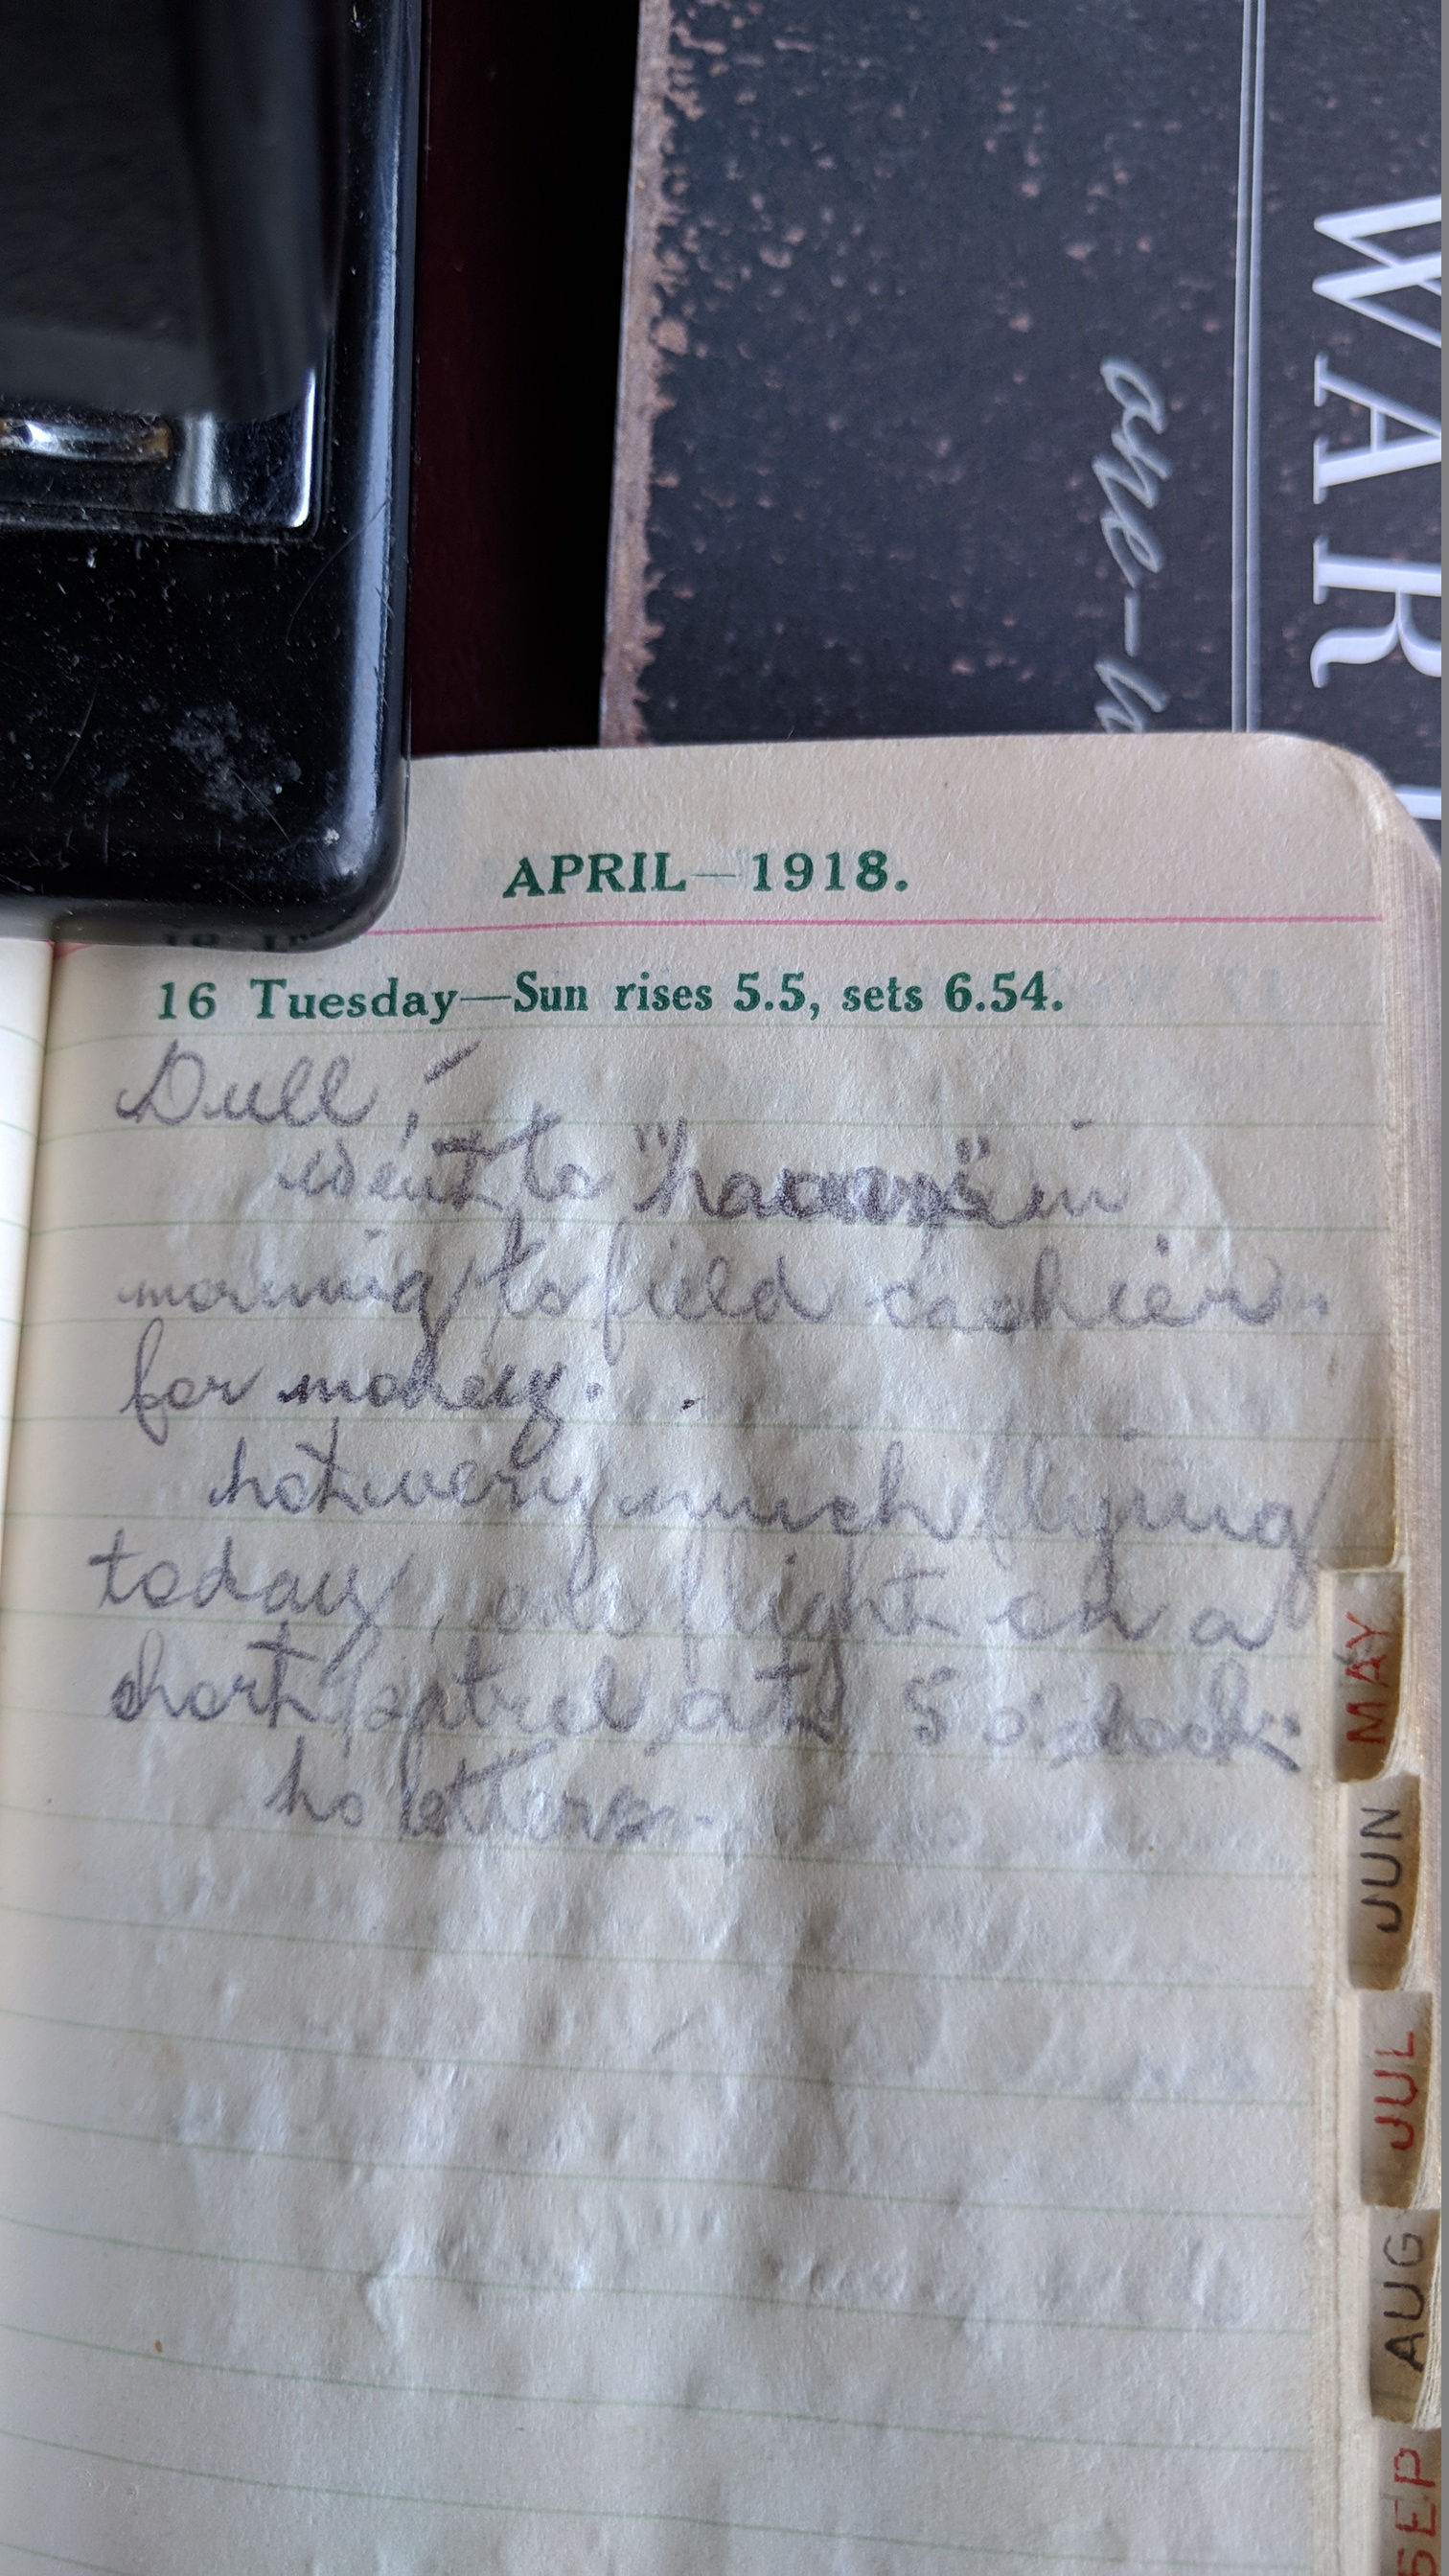 WAR
one-
APRIL—1918.
16 Tuesday—Sun rises 5.5, sets 6.54.
Dull,
Went to " " in
morning to field cashier
for money.
not very much flying
today, flight on a
short at 5 o'clock
no letters.
MAY
JUN
JUL
AUG
SEP